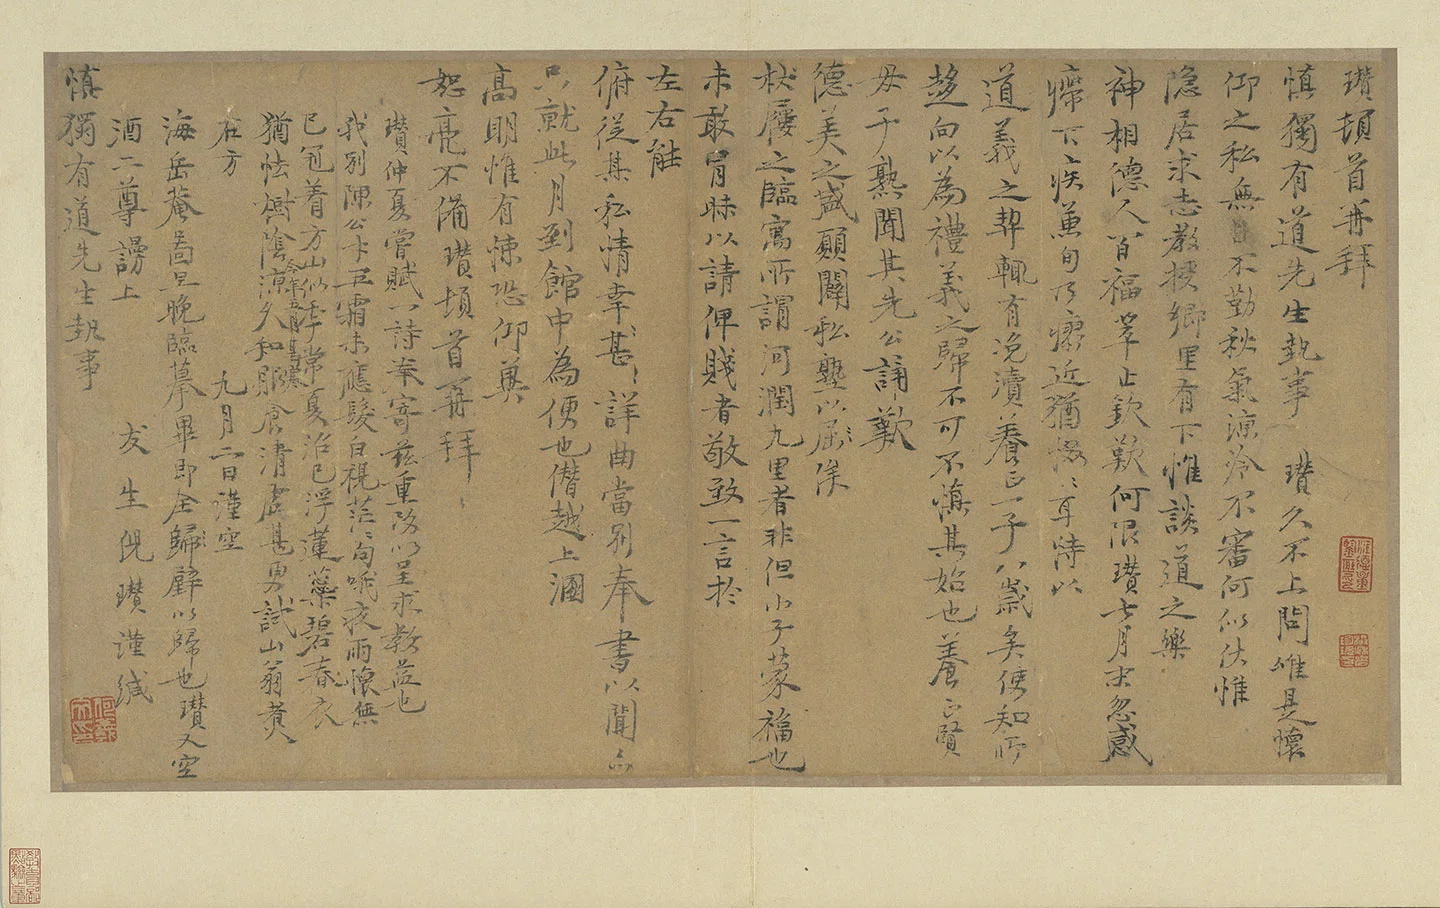 瓚頓首再拜
慎獨有道先生執事 瓚久不上問唯是懷
仰之私無日不勤秋氣涼冷不審何似伏惟
隐居求志教授鄉里有下惟談道之樂
神相德人百福萃止欽歎何限瓚七月末忽感
瘧下疾蒹旬乃瘳近猶惙〻耳恃以
道義之契輒有凂瀆養正一子八歲矣使知所
趍向以為禮義之歸不可不慎其始也養正賢
母子熟聞其先公誦歎
德美之盛願闢私塾以屈
杖屨之臨寓所謂河潤九里者非但小子蒙福也
未敢冒昧以請俾賤者敬致一言於
左右能
俯從其私情幸甚〻詳曲當别奉書以聞
只就此月到館中為便也僭越上溷
高明惟有悚恐仰冀
恕亮不備瓚頓首再拜
瓚仲夏嘗賦一詩奉寄兹重改以呈求教益也
我别陳公卡巨霜未應髮白視茫〻句哦夜雨懷無
已冠着方山似季常夏治已浮蓮葉碧春衣
猶怯樹陰涼久和服食清虛甚男試山翁煑
石方
九月二日謹空
海岳菴啚旦晩臨摹畢即全歸璧以歸也瓚又空
酒二尊謾上
友生倪瓚謹緘
慎獨有道先生執事